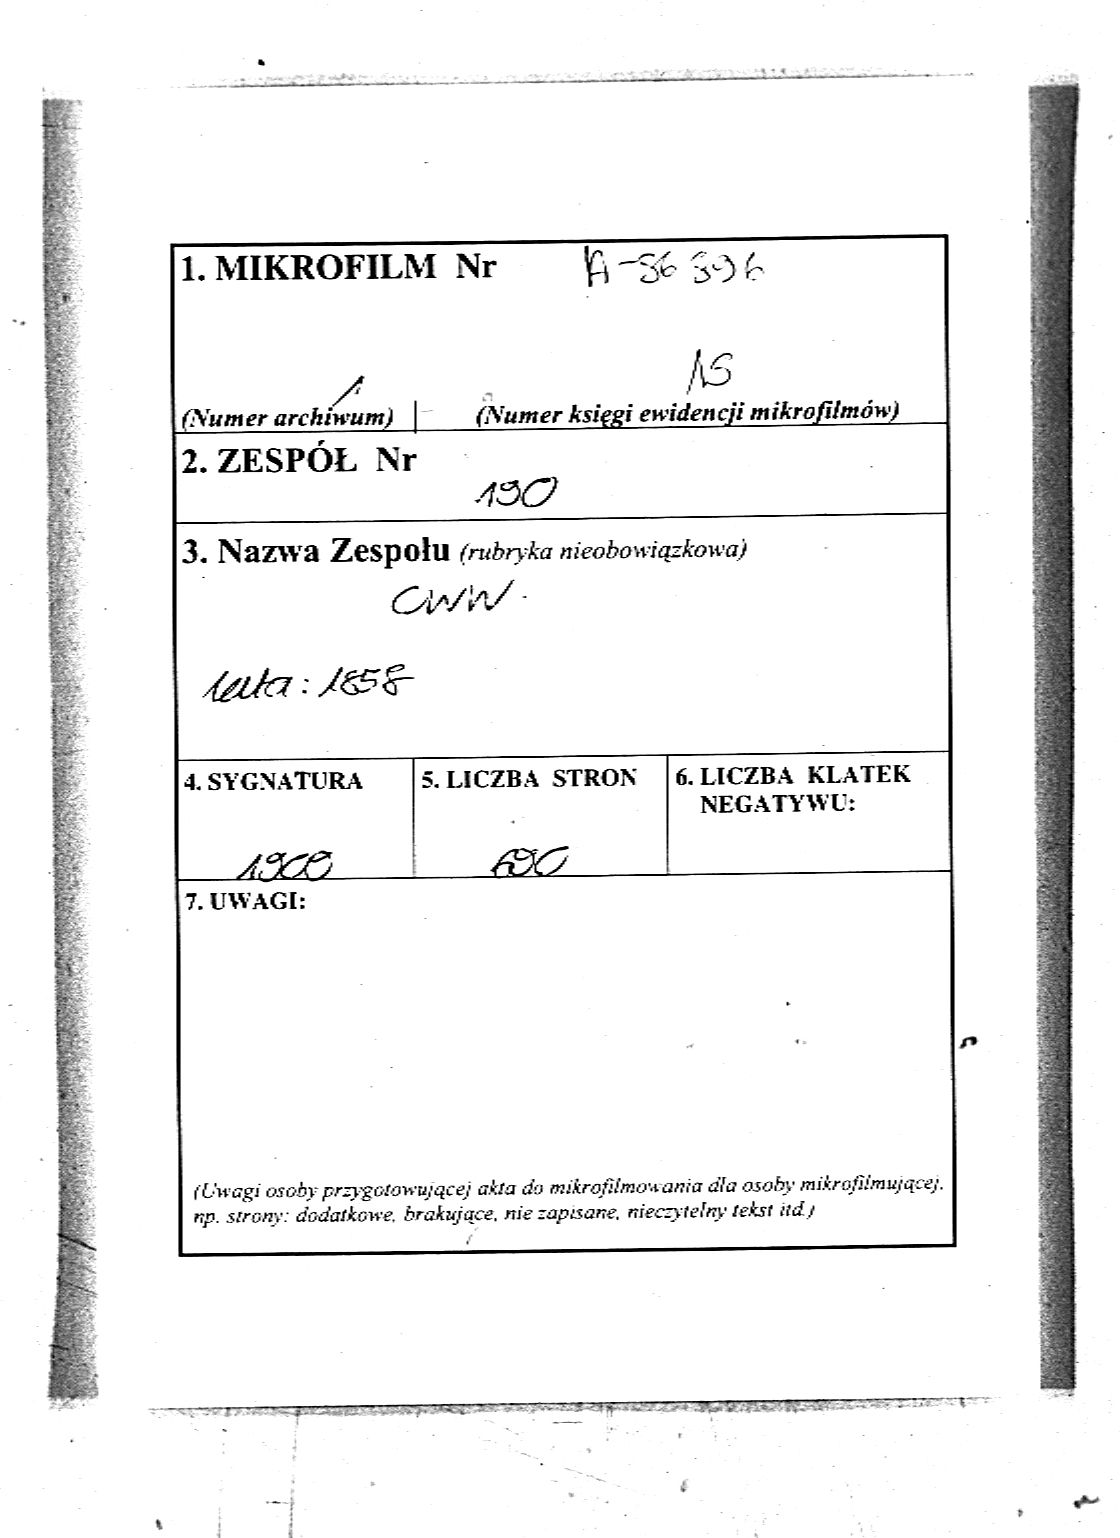 1. MIKROFILM Nr A-56 596
1 15
(Numer archiwum) (Numer księgi ewidencji mikrofilmów)
2. ZESPÓŁ Nr
190
3. Nazwa Zespołu (rubryka nieobowiązkowa)
CWW
lata: 1858
4. SYGNATURA 5. LICZBA STRON 6. LICZBA KLATEK
NEGATYWU:
690
7. UWAGI:
(Uwagi osoby przygotowującej akta do mikrofilmowania dla osoby mikrofilmującej,
np. strony: dodatkowe, brakujące, nie zapisane, nieczytelny tekst itd.)